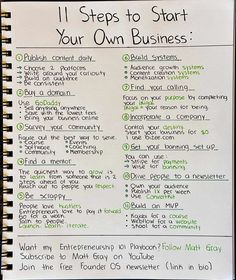 11 Steps to Start
Your Own Business:
① Publish content daily...
→ Choose 2 platforms
→ Write around your curiosity
→ Build an audience
→ Be consistent
② Buy a domain...
Use GoDaddy
→ Sell anything anywhere
→ Save with the lowest fees
→ Bring your business online
③ Survey your community...
Figure out the best way to serve:
→ Course
→ Events
→ Software
→ Coaching
→ Community
→ Membership
④ Find a mentor...
The quickest way to grow is
to learn from someone that is 2
steps ahead of you.
Reach out to people you respect
⑤ Be scrappy...
People love hustlers
Entrepreneurs love to pay it forward
Go for a walk
Talk to people
Launch. Learn. Iterate
⑥ Build systems...
→ Audience growth systems
→ Content creation systems
→ Monetization systems
⑦ Find your calling...
Focus on your purpose by completing
your ikigai
Ikigai = your reason for being.
⑧ Incorporate a company...
Control your destiny
Start your business for $0
→ I use Stripe Atlas
⑨ Get your banking set up...
You can use:
→ Stripe for payments
→ Novo for banking
⑩ Drive people to a newsletter...
→ Own your audience
→ Publish 1x per week
→ Use ConvertKit
⑪ Build an MVP
→ Kajabi for a course
→ Webflow for a website
→ a community
Want my Entrepreneurship 101 Playbook? Follow Matt Gray
Subscribe to Matt Gray on YouTube
Join the free Founder OS newsletter (link in bio)